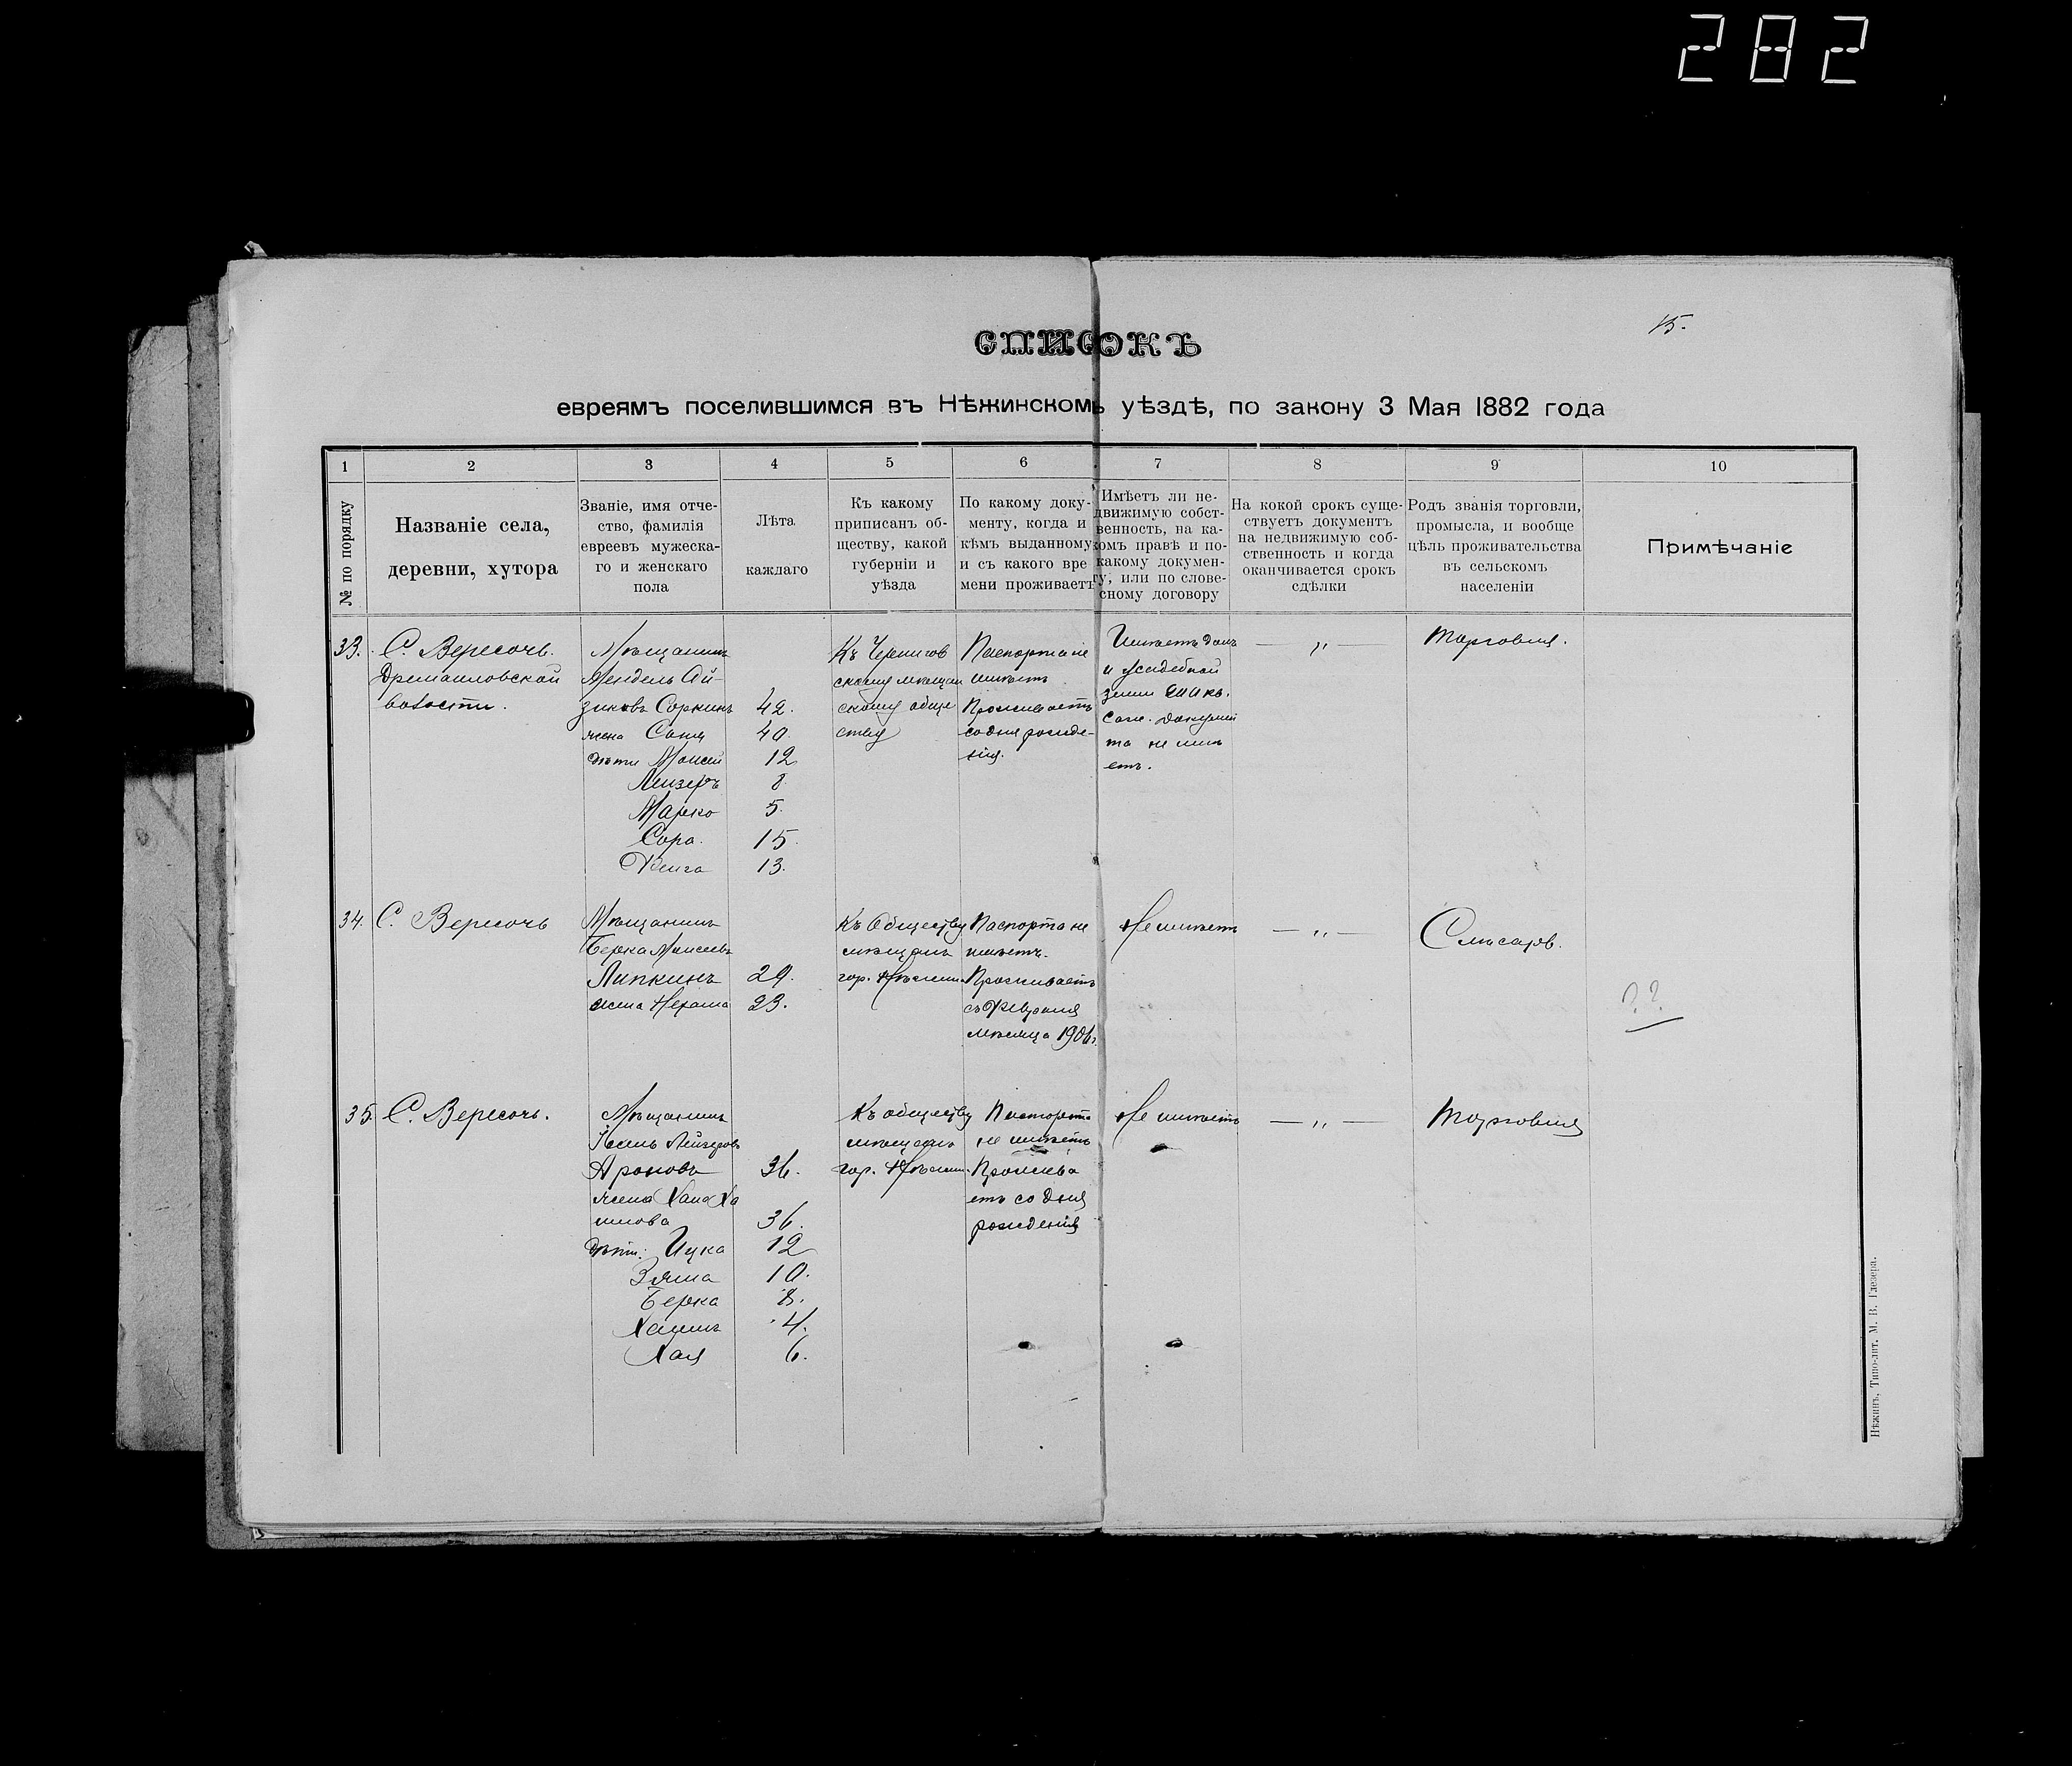 282
15.
СПИСОКЪ
евреямъ поселившимся въ Нѣжинскомъ уѣздѣ, по закону 3 Мая 1882 года
1
2
3
4
5
6
7
8
9
10
№ по порядку
Названіе села,
деревни, хутора
Званіе, имя отче-
ство, фамилія
евреевъ мужеска-
го и женскаго
пола
Лѣта
каждаго
Къ какому
приписанъ об-
ществу, какой
губерніи и
уѣзда
По какому доку-
менту, когда и
кѣмъ выданному
и съ какого вре
мени проживаетъ
Имѣетъ ли не-
движимую собст-
венность, на ка-
комъ правѣ и по-
какому докумен-
ту, или по слове-
сному договору
На кокой срокъ суще-
ствуетъ документъ
на недвижимую соб-
ственность и когда
оканчивается срокъ
сдѣлки
Родъ званія торговли,
промысла, и вообще
цѣль проживательства
въ сельскомъ
населеніи
Примѣчаніе
33.
С. Вересочь.
Дремайловской
волости.
Мѣщанинъ
Мендель Ай-
зиковъ Соркинъ 42.
жена Соня 40.
дѣти Моисей 12
Лейзеръ 8
Марко 5.
Сора. 15.
Фейга 13.
Къ Чернигов
скому мѣщан
скому обще
ству
Паспорта не
имѣетъ
Проживаетъ
со дня рожде-
нія.
Имѣетъ домъ
и усадебной
земли кв.
саж. докумен
та не имѣ
етъ.
— „ —
Торговля.
34.
С. Вересочь
Мѣщанинъ
Берка Моисеевъ
Липкинъ 29.
жена Нехама 23.
Къ Обществу
мѣщанъ
гор. Нѣжина.
Паспорта не
имѣетъ.
Проживаетъ
съ Февраля
мѣсяца 1906г.
Не имѣетъ
— „ —
Слѣсаръ.
??
35.
С. Вересочь.
Мѣщанинъ
Іосель Лейзеровъ
Ароновъ 36.
жена Хана Ха
имова 36.
дѣти: Ицка 12
Зяма 10.
Берка 8.
Хаимъ 4.
Хая 6.
Къ обществу
мѣщанъ
гор. Нѣжина.
Паспорта
не имѣетъ
Прожива
етъ со дня
рожденія
Не имѣетъ
— „ —
Торговля
Нѣжинъ, Типо-лит. М. В. Глезера.